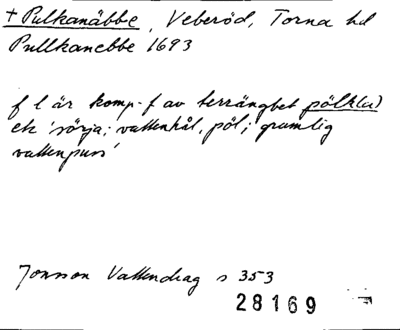 + Pulkanäbbe, Veberöd, Torna hd
Pullkanebbe 1693
f l är komp-f av terrängbet pölk(a)
etc 'sörja; vattenhål, pöl; grumlig
vattenpuss'
Jonsson Vattendrag s 353
28169